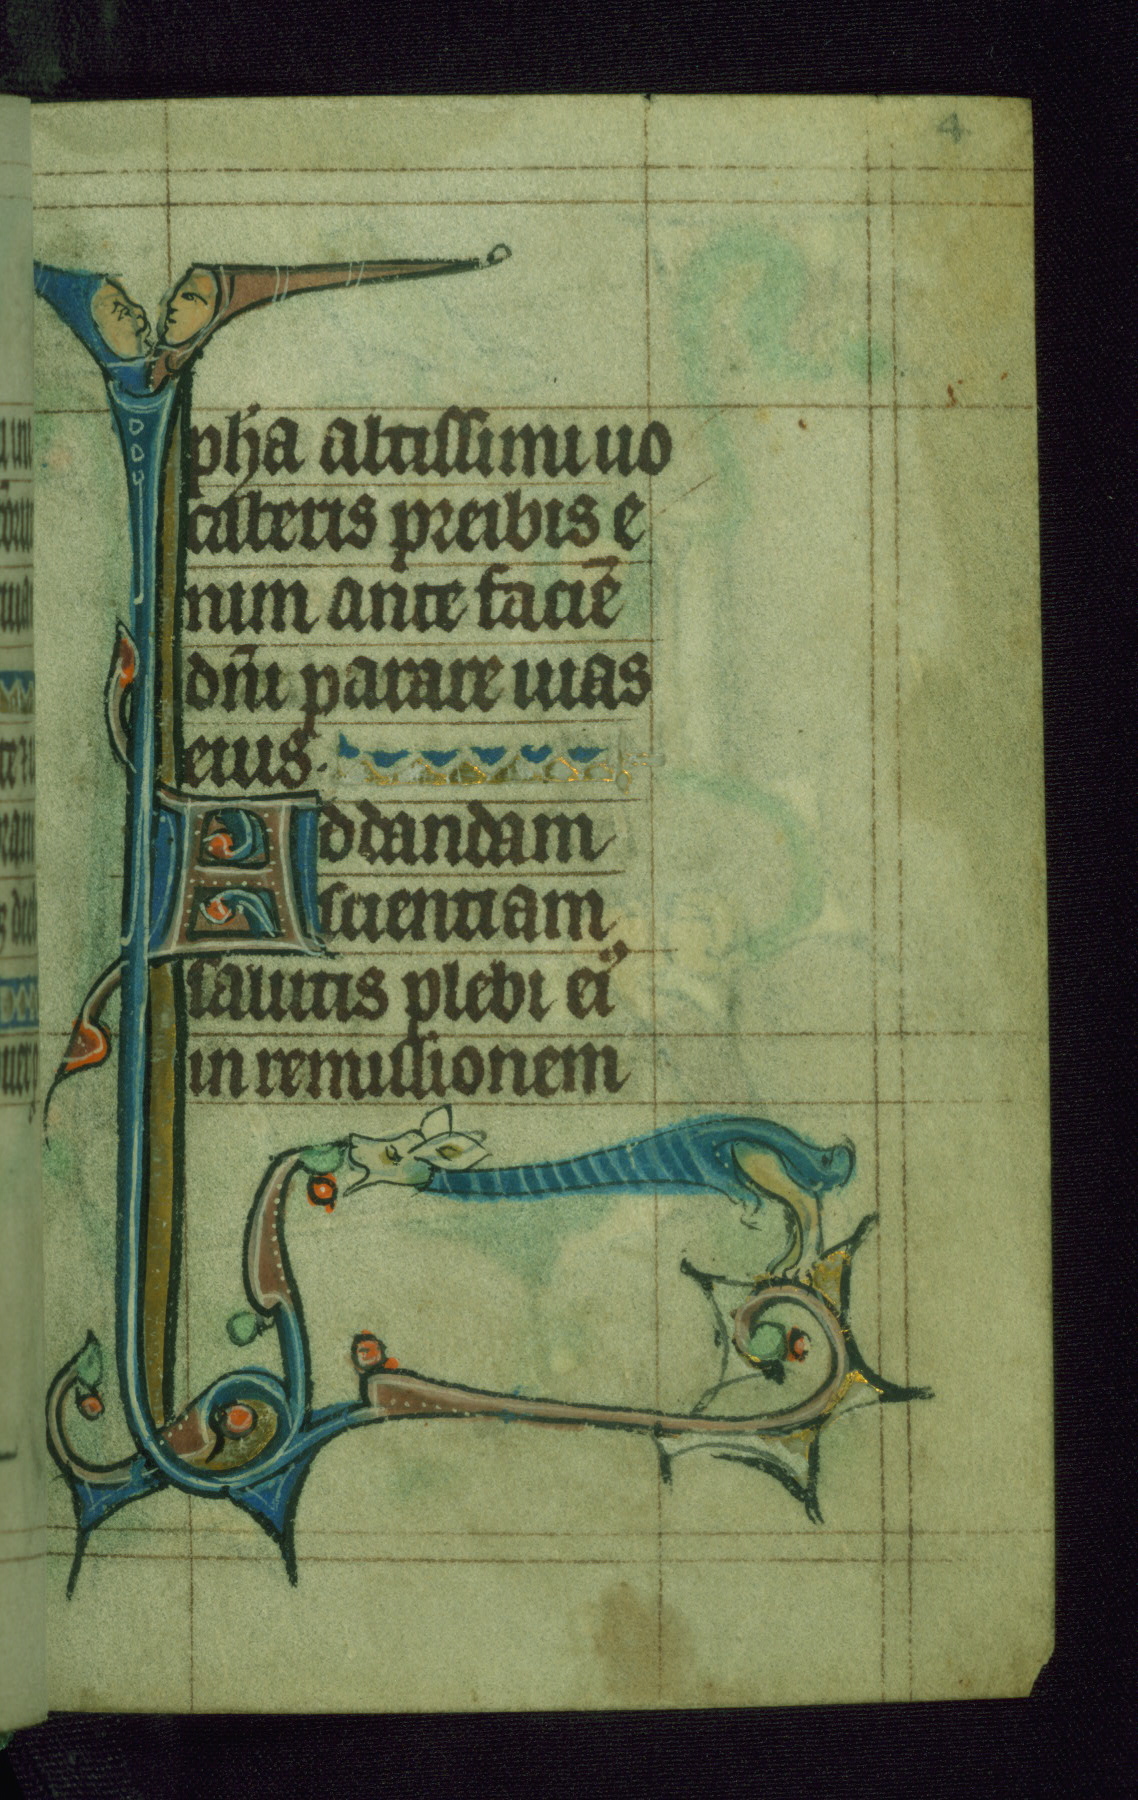 4
ph̄a altissimi uo
caberis preibis e
nim ante faciē
dñi parare uias
eius.
Addandam
scientiam
salutis plebi ei᾿
in remissionem